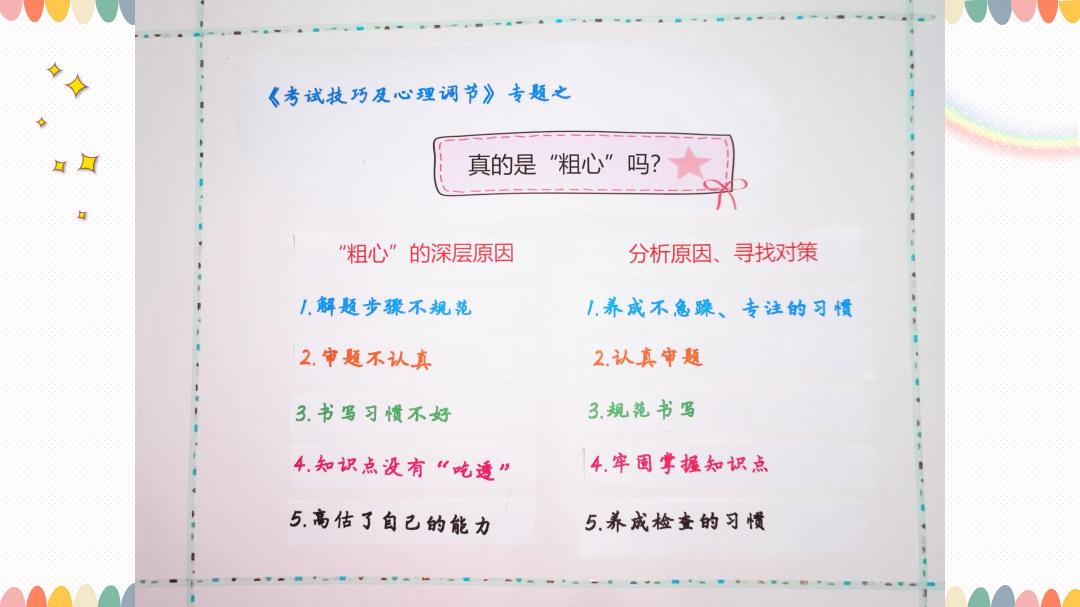 《考试技巧及心理调节》专题之
真的是“粗心”吗？
“粗心”的深层原因
1.解题步骤不规范
2.审题不认真
3.书写习惯不好
4.知识点没有“吃透”
5.高估了自己的能力
分析原因、寻找对策
1.养成不急躁、专注的习惯
2.认真审题
3.规范书写
4.牢固掌握知识点
5.养成检查的习惯